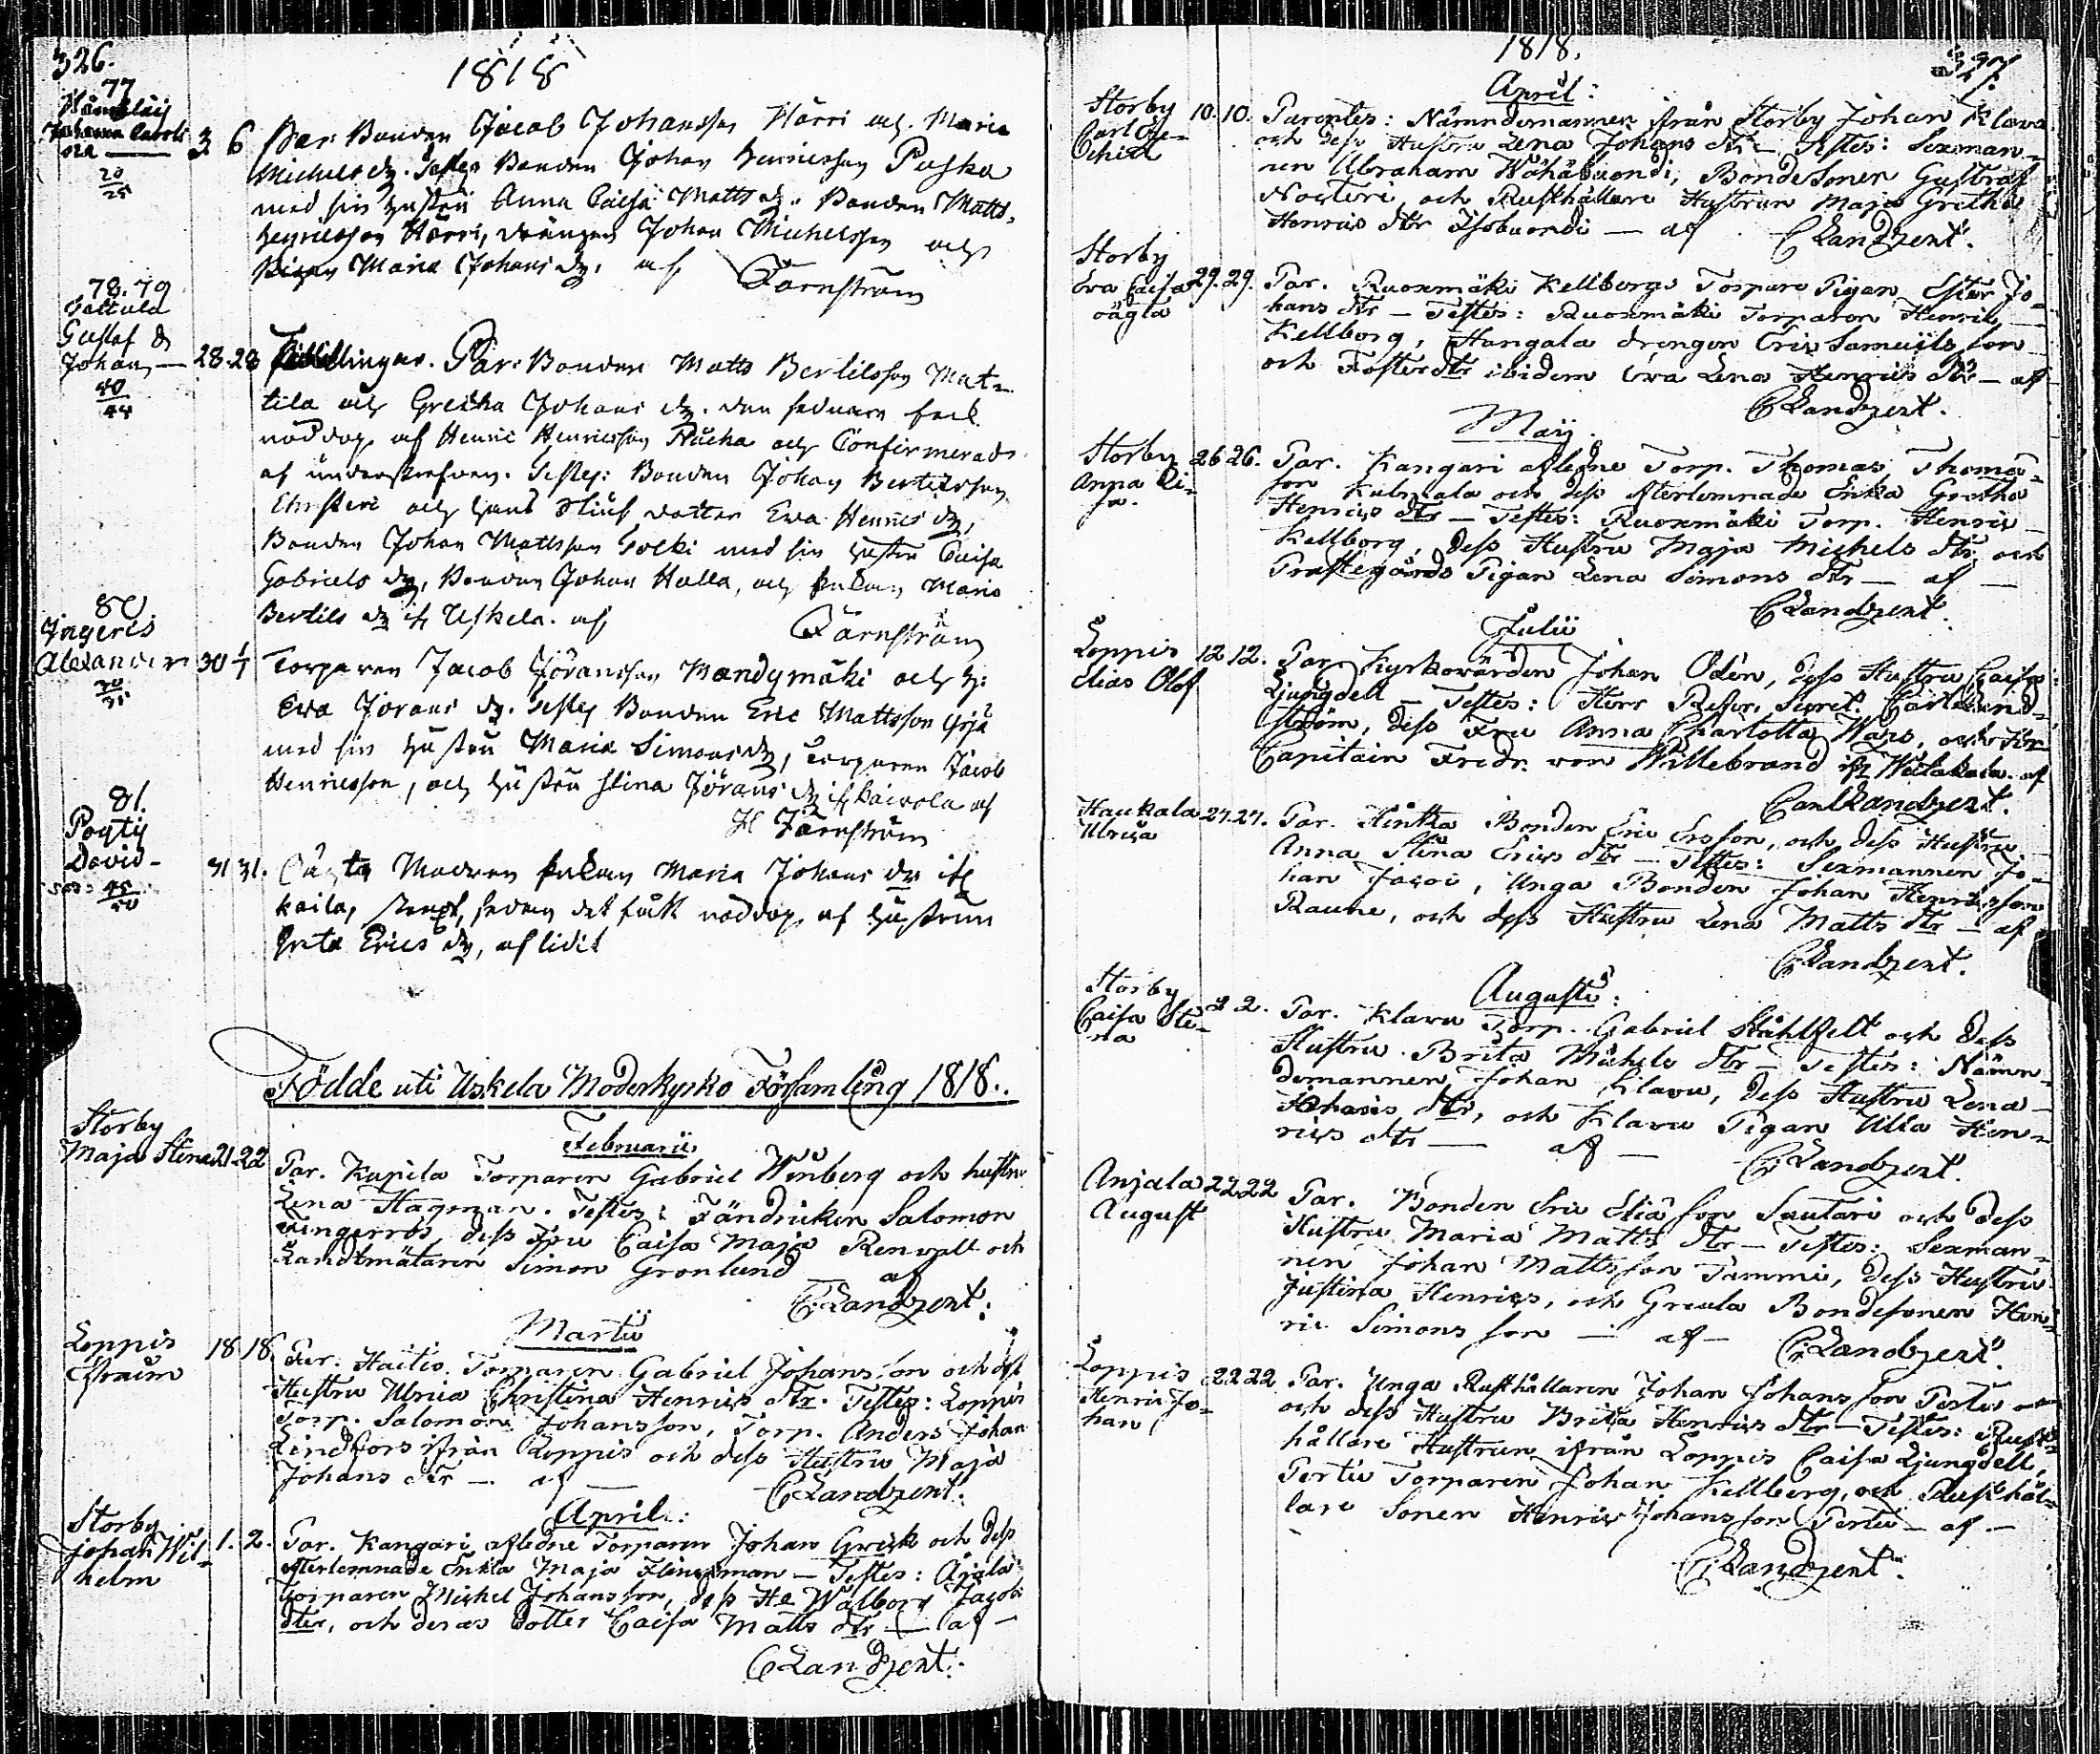 326.
1818
77
Johanna Caroli
na — 3 6 Par: Bonden Jacob Johansson Härri och Maria
20/25
Michelsdr. Testes Bonden Johan Henricsson Paska
med sin hustru Anna Caisa Mattsdr. Bonden Matts
Henricsson Härri, drängen Johan Michelsson och
Pigan Maria Johansdr. af Färnström
78. 79
Gustaf &
Johan — 28. 28 Tvillingar. Par: Bonden Matts Bertilsson Mat-
40/44
tila och Gretha Johans dr. den sednare fått
nöddop af Henric Henricsson och Confirmerad
af underskrefven. Testes: Bonden Johan Bertilsson
och hans dotter Eva Henrics dr,
Bonden Johan Mattsson med sin hustru Caisa
Gabriels dr, Bonden Johan Halla, och Maria
Bertils dr if. Uskela. af Färnström
80
Ingeris
Alexander 30 1/1 Torparen Jacob Jöransson Mandymäki och h:
30/35
Eva Jörans dr. Testes Bonden Eric Mattsson
med sin hustru Maria Simonsdr, torparen Jacob
Henricsson, och hustru Stina Jörans dr if. Kaivola af
Färnström
81.
Pöytiö
David - 31 31. Oägta Modren Maria Johans dr if.
45/50
kaila, sedan det fått nöddop af hustrun
Greta Erics dr, aflidit
Födde uti Uskela Moderkyrko Församling 1818.
Februarii
Storby
Maja Stina 21. 22 Par. Kapila Torparen Gabriel Winberg och hustru
Lena Hagman. Testes: Fändricken Salomon
Fingerroos, dess Fru Caisa Maja Renvall och
Landtmätaren Simon Grönlund — af
C: Landzent.
Martii
Loppis
Efraim 18 18. Par. Haitis Torparen Gabriel Johansson och dess
Hustru Ulrica Christina Henrics dtr. Testes: Loppis
Torp. Salomon Johansson, Torp. Anders Johan
Lindfors ifrån Loppis och dess Hustru Maja
Johans dtr — af —
C: Landzent.
April:
Storby
Johan Wil-
helm 1. 2. Par. Kangari afledne Torparen Johan Grek och dess
efterlemnade Enka Maja Flinckman — Testes: Åjala
Torparen Michel Johansson, dess H:e Walborg Jacobs
dter, och deras dotter Caisa Matts dtr — af —
C: Landzent.
1818.
327.
April:
Storby
Carl 10. 10. Parentes: Nämndemannen ifrån Storby Johan Klavu
och dess Hustru Lena Johans dtr — Testes: Sexman-
nen Abraham Wähäkuondi, Bondesonen Gustaf
Nocteri och Rusthållare Hustrun Maja Gretha
Henrics dtr Isokuondi — af C Landzent.
Storby
Eva Caisa
oägta 29. 29. Par. Ruoxmäki Kellbergs Torpare Pigan Ester Jo-
hans dtr — Testes: Ruoxmäki Torparen Henric
Kellborg, Hangala drengen Eric Samuels son
och Foster dtr ibidem Eva Lena Henrics dtr — af
C: Landzent.
Maij.
Storby
Anna Li-
sa. 26 26. Par. Kangari afledne Torp. Thomas Thomæ-
son Kulmala och dess efterlemnade Enka Gretha
Henrics dtr — Testes: Ruoxmäki Torp. Henric
Kellborg, dess Hustru Maja Michels dtr, och
Prästegårds Pigan Lena Simons dtr — af —
C: Landzent.
Julii
Loppis
Elias Olof 12 12. Par. Kyrkovärden Johan Odén, dess Hustru Caisa
Ljungdell — Testes: Herr Refer. Secret. Carl Lind-
ström, dess Fru Anna Charlotta, och Hr
Capitain Fredr. von Willebrand if. af
Carl Landzent.
Haukala
Ulrica 27. 27. Par. Hintka Bonden Eric Ersson, och dess Hustru
Anna Stina Erics dtr — Testes: Sexmannen Jo-
han, Unga Bonden Johan Henricsson
Raune, och dess Hustru Lena Matts dtr — af
C: Landzent.
Augusti:
Storby
Caisa Sti-
na 2 2. Par. Klavu Torp. Gabriel Ståhlfelt och dess
Hustru Brita Michels dtr — Testes: Nämn-
demannen Johan Klavu, dess Hustru Lena
Johans dtr, och Klavu Pigan Ulla Hen-
rics dtr — af —
C: Landzent.
Anjala
August 22 22 Par. Bonden Eric Eliæ son Sautari och dess
Hustru Maria Matts dtr — Testes: Sexman-
nen Johan Mattsson Tammi, dess Hustru
Justina Henrics, och Greula Bondesonen Hen-
ric Simons son — af —
C: Landzent.
Loppis
Henric Jo-
han 22 22 Par. Unga Rusthållaren Johan Johansson Pertu
och dess Hustru Brita Henrics dtr — Testes: Rust-
hållare Hustrun ifrån Loppis Caisa Ljungdell,
Pertu Torparen Johan Kellberg, och Rusthål-
lare Sonen Henric Johansson Pertu — af —
C: Landzent.